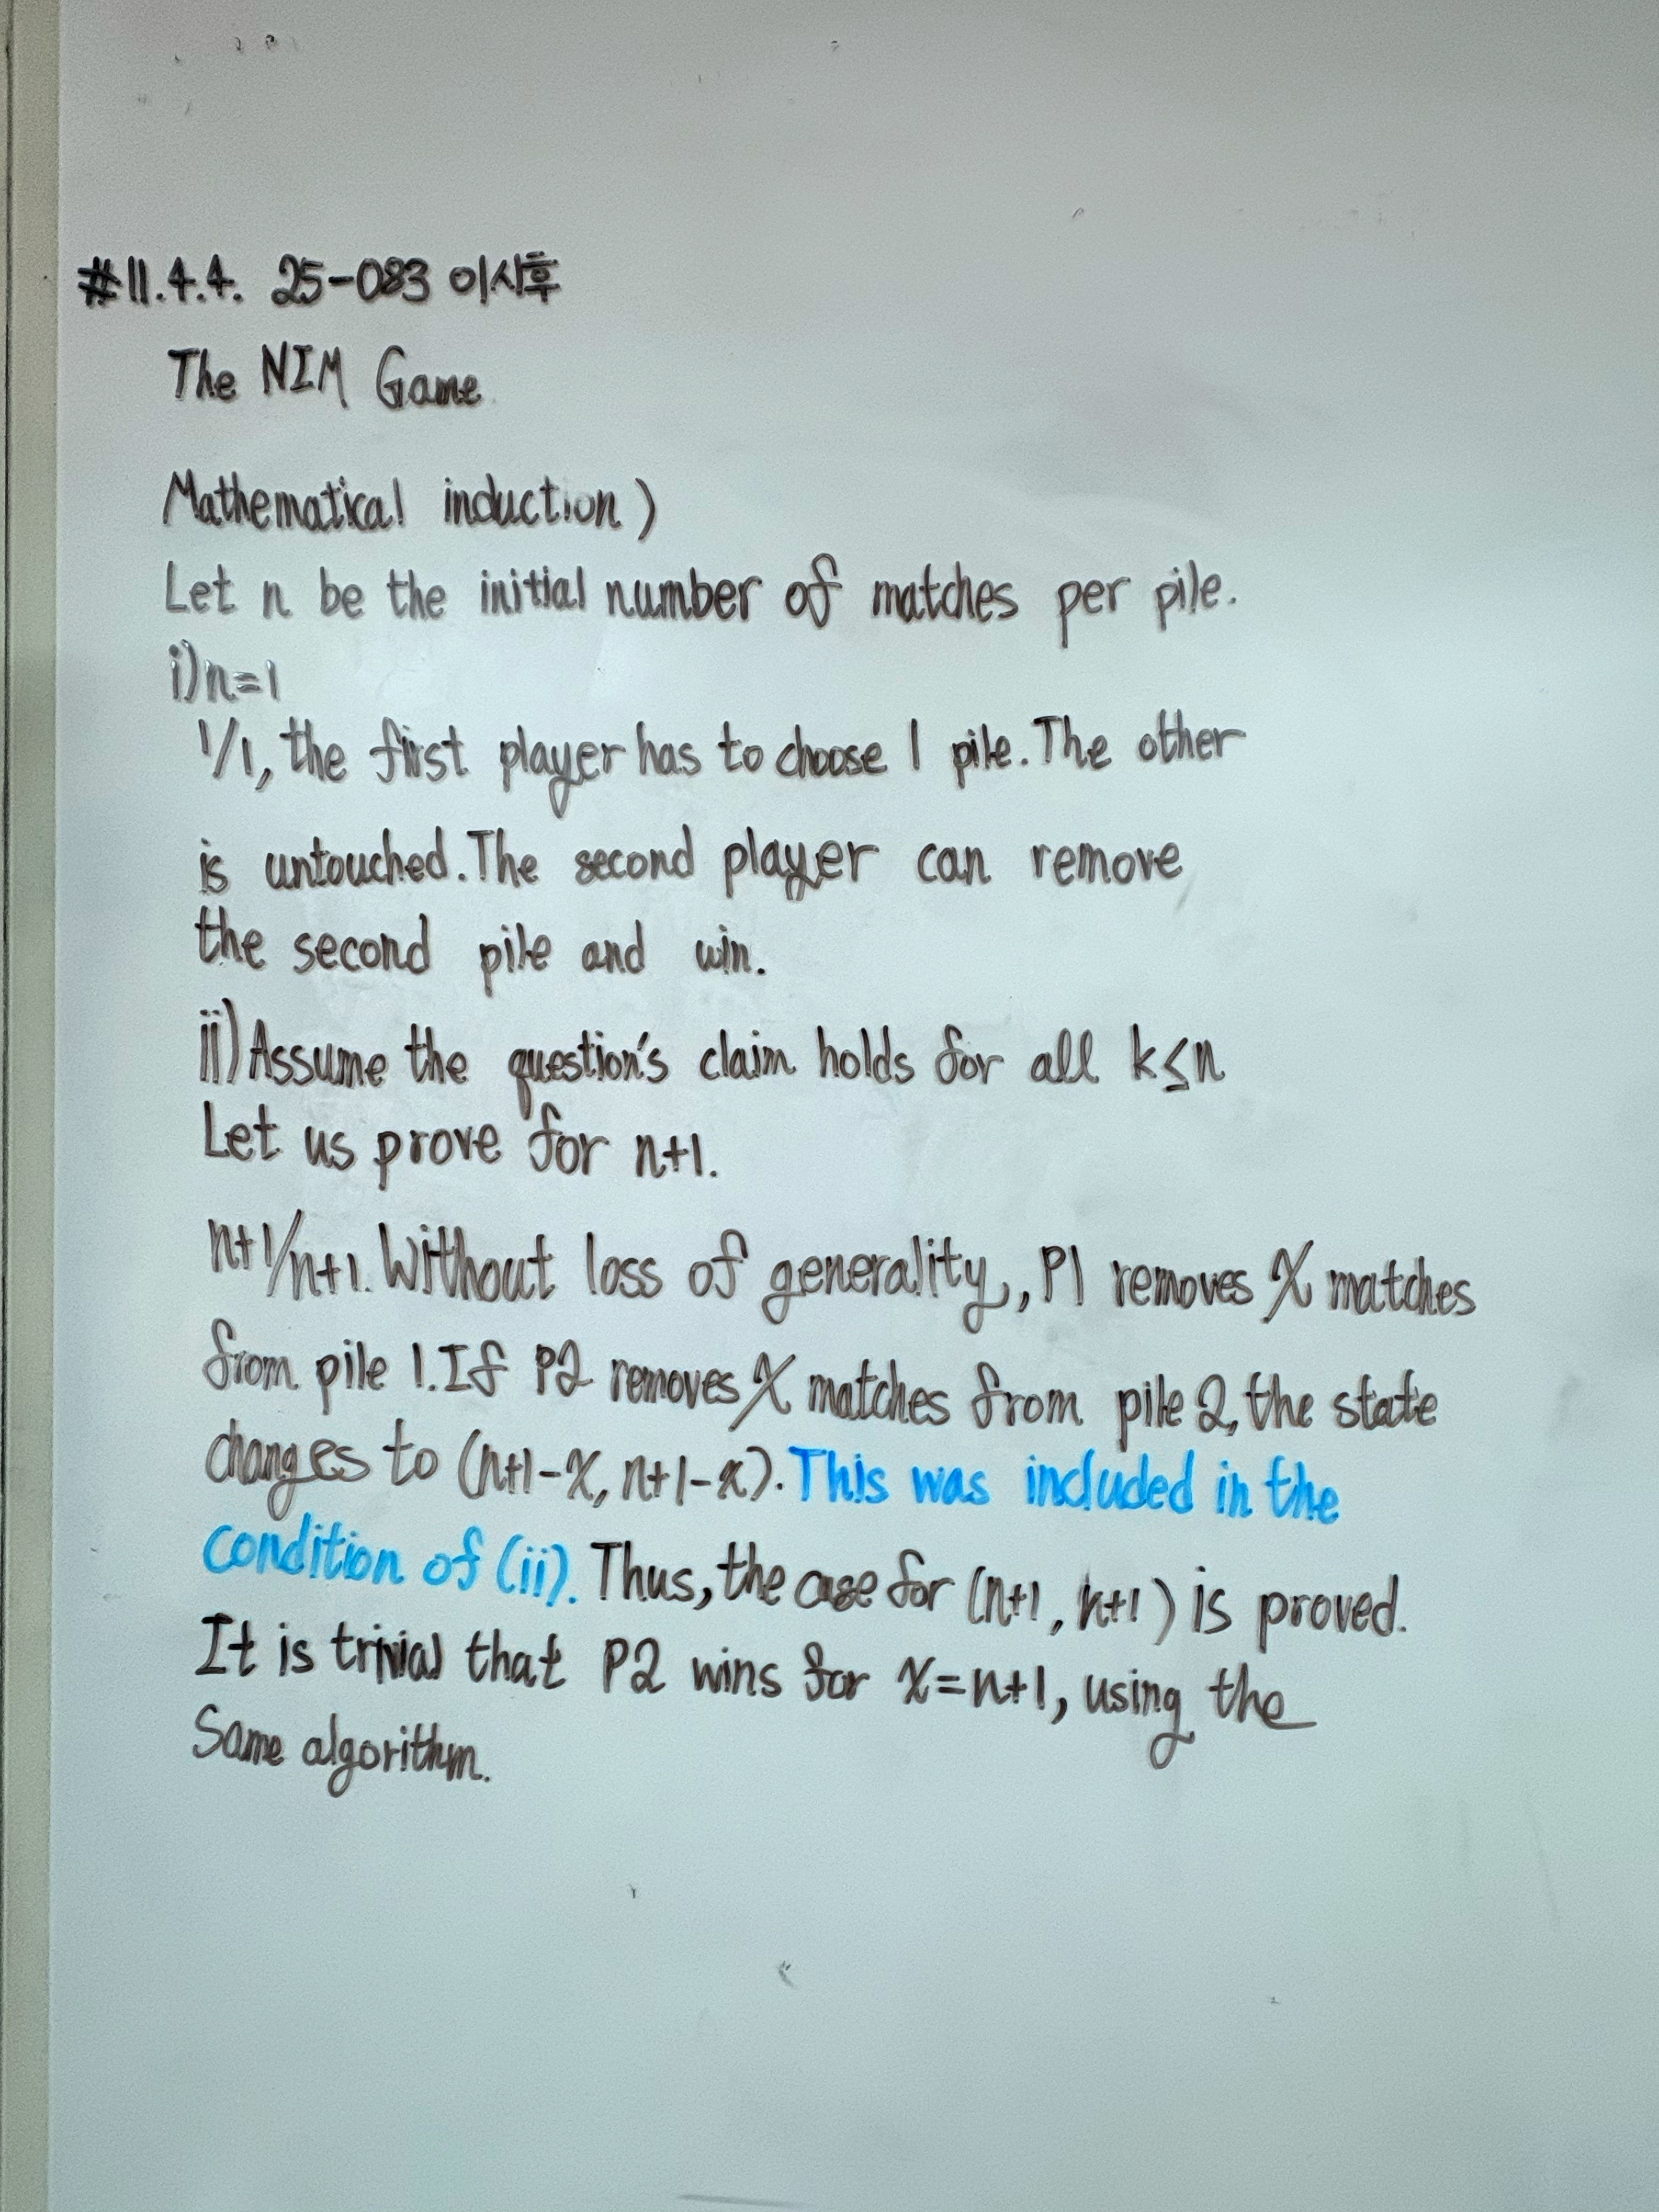 #11.4.4. 25-083 이시후
The NIM Game
Mathematical induction)
Let n be the initial number of matches per pile.
i) n=1
1/1, the first player has to choose 1 pile. The other
is untouched. The second player can remove
the second pile and win.
ii) Assume the question's claim holds for all k≤n
Let us prove for n+1.
n+1/n+1. Without loss of generality, P1 removes x matches
from pile 1. If P2 removes x matches from pile 2, the state
changes to (n+1-x, n+1-x). This was included in the
condition of (ii). Thus, the case for (n+1, n+1) is proved.
It is trivial that P2 wins for x=n+1, using the
Same algorithm.